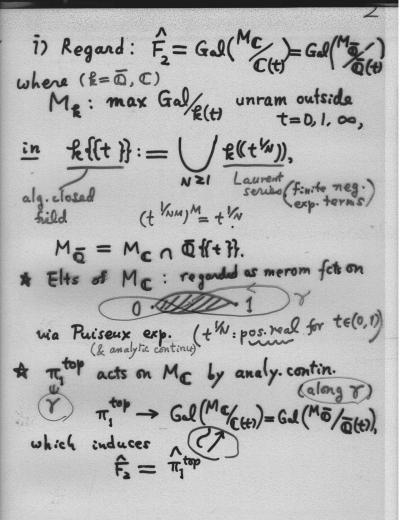 2
i) Regard: F̂₂ = Gal(M_ℂ/ℂ(t)) = Gal(M_ℚ̄/ℚ̄(t))
where (k = ℚ̄, ℂ)
M_k : max Gal/k(t) unram outside
t=0,1,∞,
in k{{t}} := ⋃_{N≥1} k((t^{1/N})),
alg. closed
feild
Laurent
series (finite neg.
exp. terms)
(t^{1/NM})^M = t^{1/N}
M_ℚ̄ = M_ℂ ∩ ℚ̄{{t}}.
★ Elts of M_ℂ : regarded as merom fcts on
0 1 γ
via Puiseux exp. (t^{1/N} : pos. real for t∈(0,1))
(& analytic continue)
★ π₁^{top} acts on M_ℂ by analy. contin.
(along γ)
γ
π₁^{top} → Gal(M_ℂ/ℂ(t)) = Gal(M_ℚ̄/ℚ̄(t)),
which induces
F̂₂ = π̂₁^{top}